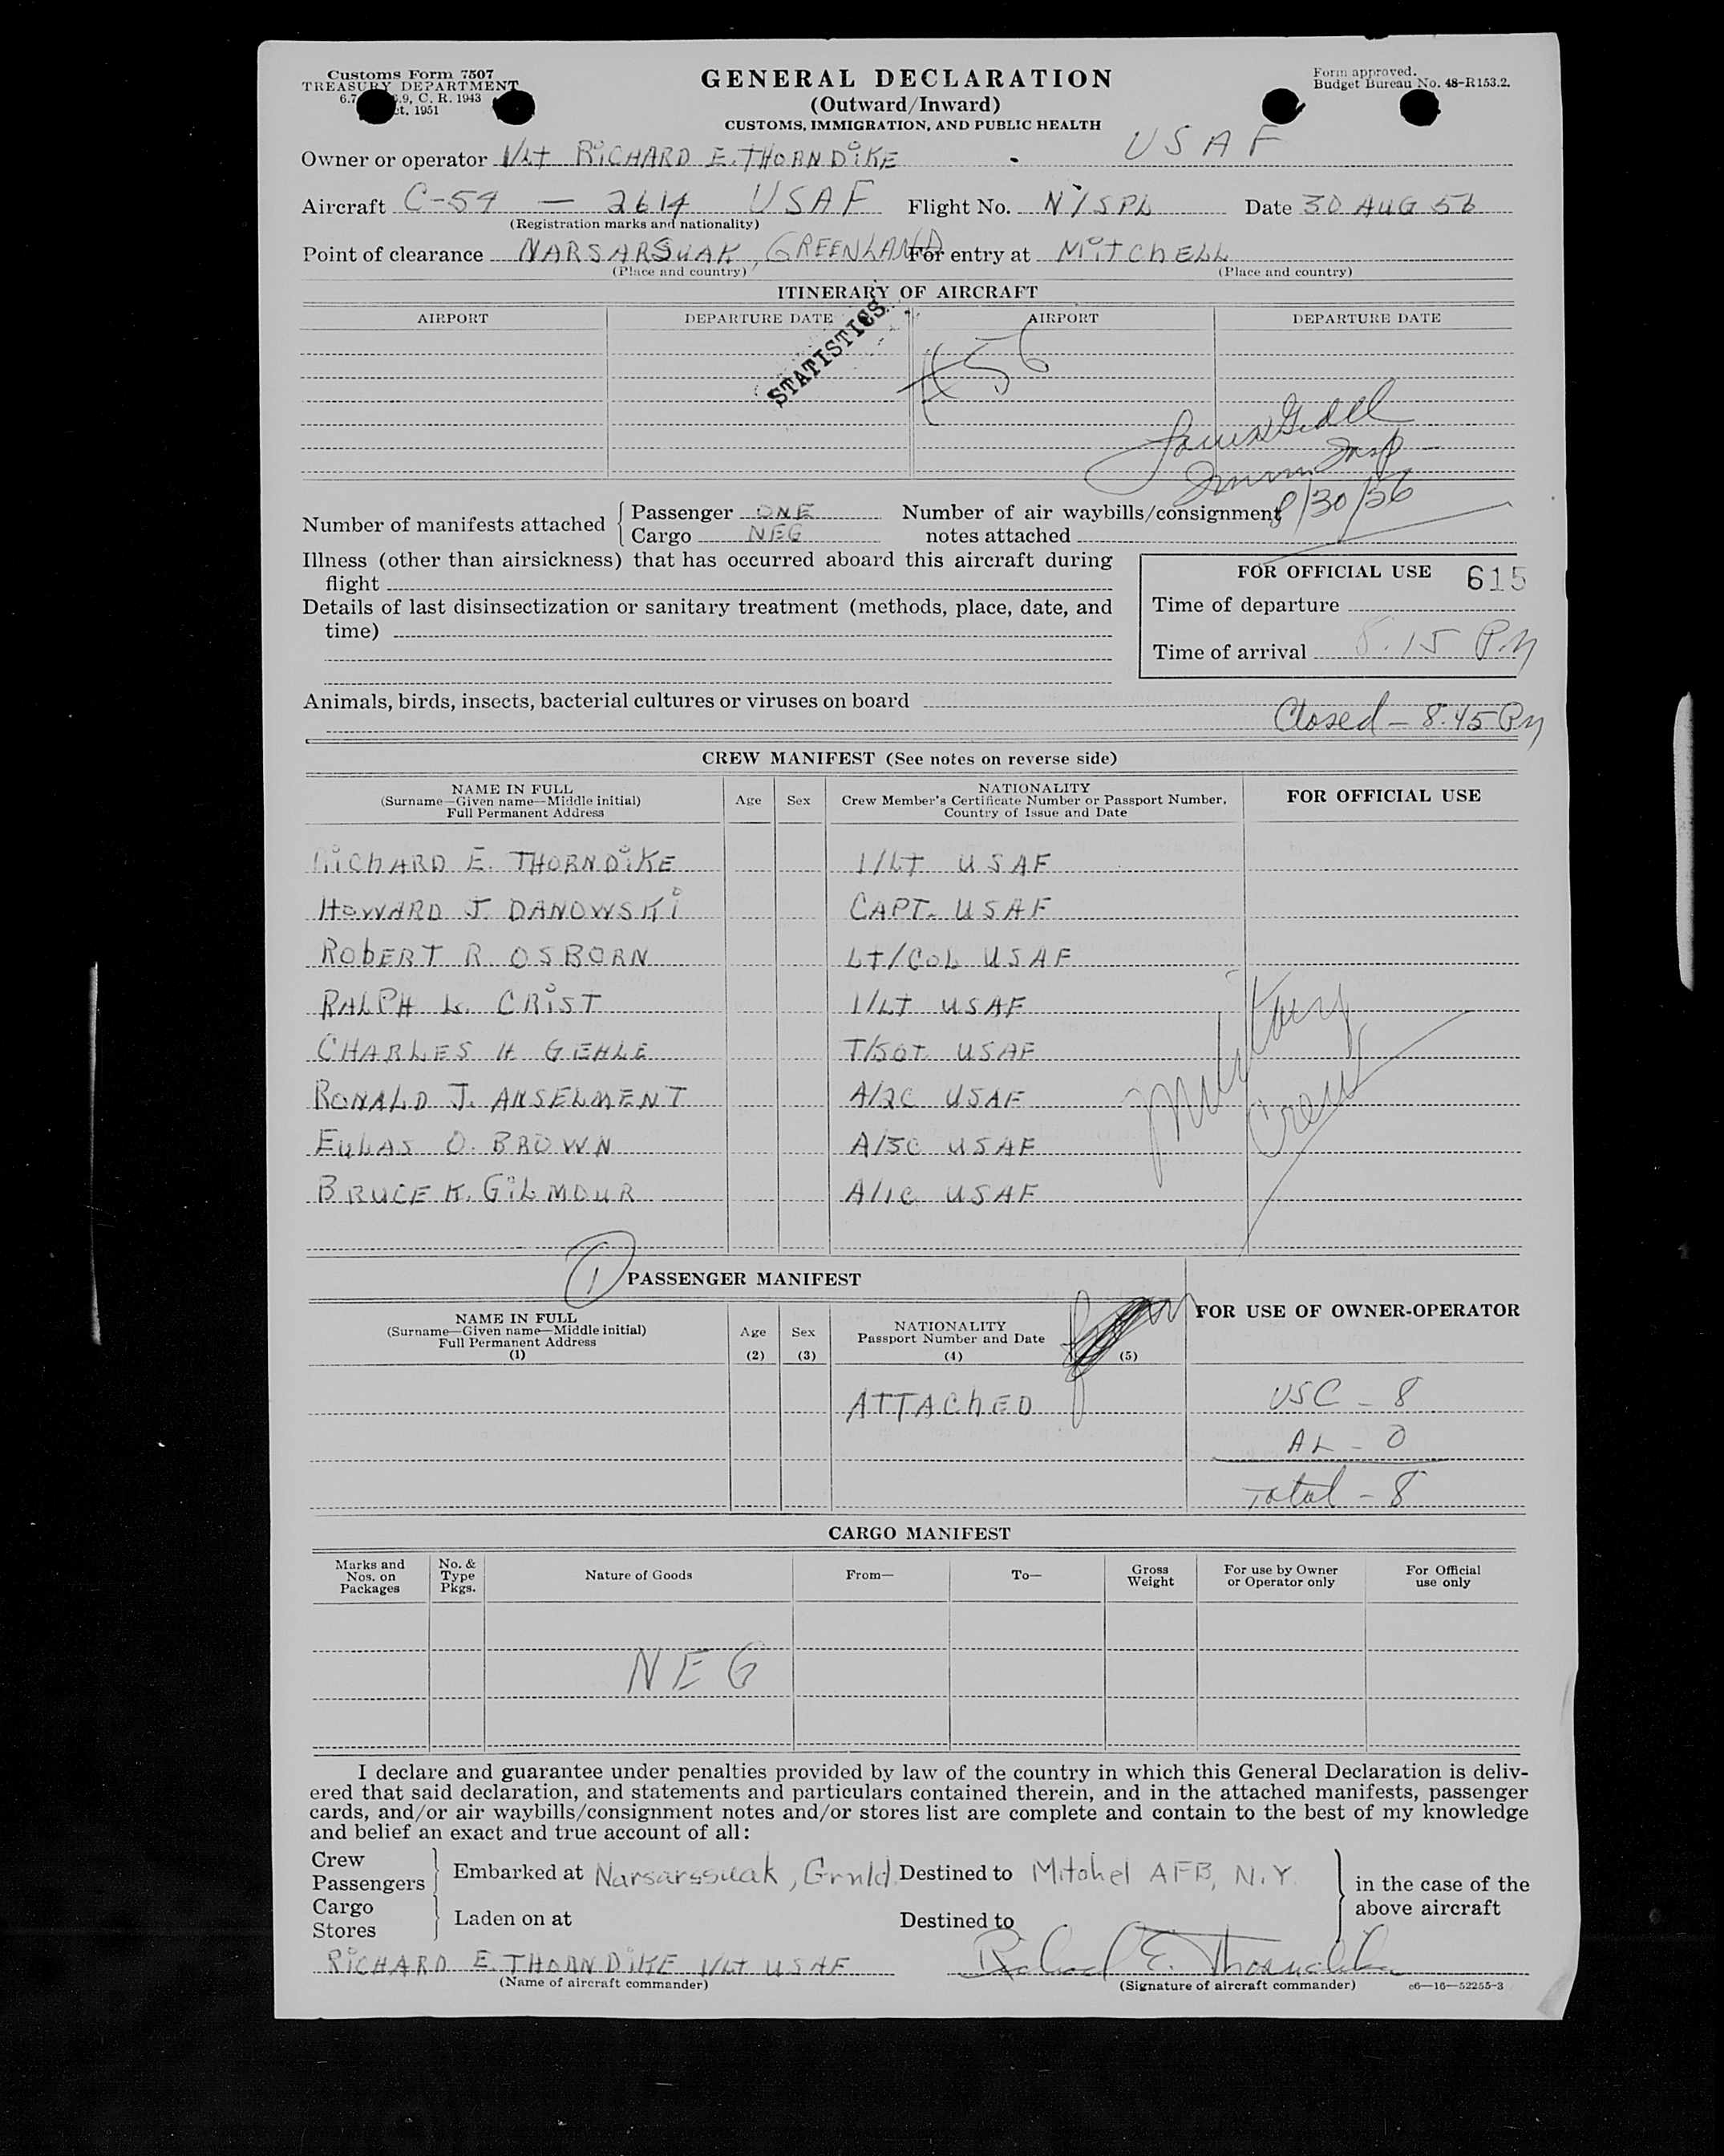 Customs Form 7507
TREASURY DEPARTMENT
C. R. 1943
1951
GENERAL DECLARATION
(Outward/Inward)
CUSTOMS, IMMIGRATION, AND PUBLIC HEALTH
Form approved.
Budget Bureau No. 48-R153.2.
Owner or operator 1/LT RICHARD E. THORNDIKE USAF
Aircraft C-54 — 2614 USAF Flight No. Date 30 AUG 56
(Registration marks and nationality)
Point of clearance NARSARSUAK, GREENLAND For entry at MITCHELL
(Place and country) (Place and country)
ITINERARY OF AIRCRAFT
AIRPORT DEPARTURE DATE AIRPORT DEPARTURE DATE
STATISTICS
56
Imm. Insp
8/30/56
Number of manifests attached
Passenger ONE
Cargo NEG
Number of air waybills/consignment
notes attached
Illness (other than airsickness) that has occurred aboard this aircraft during
flight
Details of last disinsectization or sanitary treatment (methods, place, date, and
time)
FOR OFFICIAL USE 615
Time of departure
Time of arrival 8.15 PM
Animals, birds, insects, bacterial cultures or viruses on board
Closed - 8.45 PM
CREW MANIFEST (See notes on reverse side)
NAME IN FULL
(Surname—Given name—Middle initial)
Full Permanent Address
Age Sex
NATIONALITY
Crew Member's Certificate Number or Passport Number,
Country of Issue and Date
FOR OFFICIAL USE
RICHARD E. THORNDIKE 1/LT USAF
HOWARD J. DANOWSKI CAPT. USAF
ROBERT R. OSBORN LT/COL USAF
RALPH L. CRIST 1/LT USAF
CHARLES H GEHLE T/SGT USAF
RONALD J. ANSELMENT A/2C USAF
EULAS O. BROWN A/3C USAF
BRUCE K. GILMOUR A/1C USAF
Military
Crew
1
PASSENGER MANIFEST
NAME IN FULL
(Surname—Given name—Middle initial)
Full Permanent Address
(1)
Age
(2)
Sex
(3)
NATIONALITY
Passport Number and Date
(4)
(5)
FOR USE OF OWNER-OPERATOR
ATTACHED
USC - 8
AL - 0
Total - 8
CARGO MANIFEST
Marks and
Nos. on
Packages
No. &
Type
Pkgs.
Nature of Goods
From—
To—
Gross
Weight
For use by Owner
or Operator only
For Official
use only
NEG
I declare and guarantee under penalties provided by law of the country in which this General Declaration is deliv-
ered that said declaration, and statements and particulars contained therein, and in the attached manifests, passenger
cards, and/or air waybills/consignment notes and/or stores list are complete and contain to the best of my knowledge
and belief an exact and true account of all:
Crew
Passengers
Embarked at Narsarssuak, Grnld. Destined to Mitchel AFB, N.Y.
in the case of the
above aircraft
Cargo
Stores
Laden on at Destined to
RICHARD E. THORNDIKE 1/LT USAF Richard E. Thorndike
(Name of aircraft commander) (Signature of aircraft commander) c6—16—52255-3